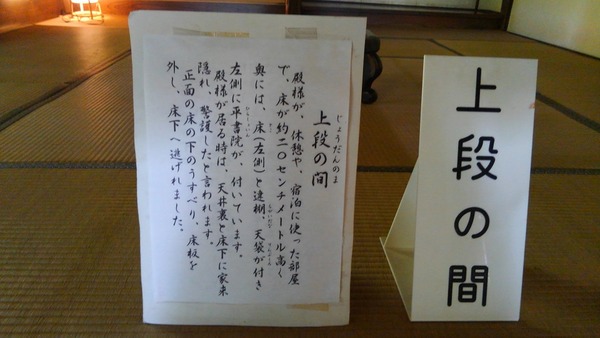 じょうだんのま
上段の間
殿様が、休憩や、宿泊に使った部屋
で、床が約二〇センチメートル高く
奥には、床(左側)と違棚、天袋が付き
左側に平書院が、付いています。
殿様が居る時は、天井裏と床下に家来
隠れ、警護したと言われます。
正面の床の下のうすべり、床板を
外し、床下へ逃げれました。
上段の間